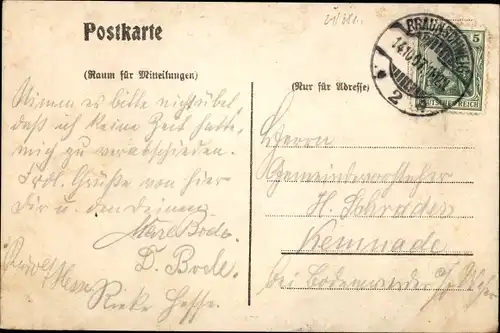 Postkarte
(Raum für Mitteilungen)
(Nur für Adresse)
BRAUNSCHWEIG
14.10.07
2
5
DEUTSCHES REICH
Nimm es bitte nicht übel,
daß ich keine Zeit hatte,
mich zu verabschieden.
Frdl. Grüße von hier
Dir u. den Deinen
Bode.
D. Bode.
Rieke Hesse.
Herrn
Gemeindevorsteher
H.
Kemnade
bei Bodenwerder